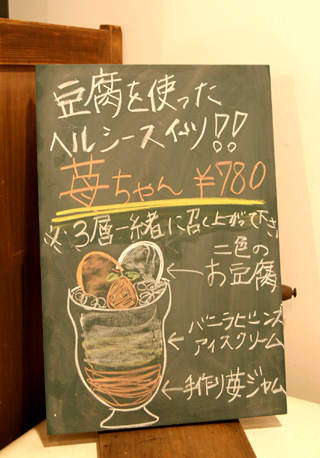 豆腐を使った
ヘルシースイーツ!!
苺ちゃん ¥780
※3層一緒に召し上がって下さい
二色の
お豆腐
バニラビーンズ
アイスクリーム
手作り苺ジャム